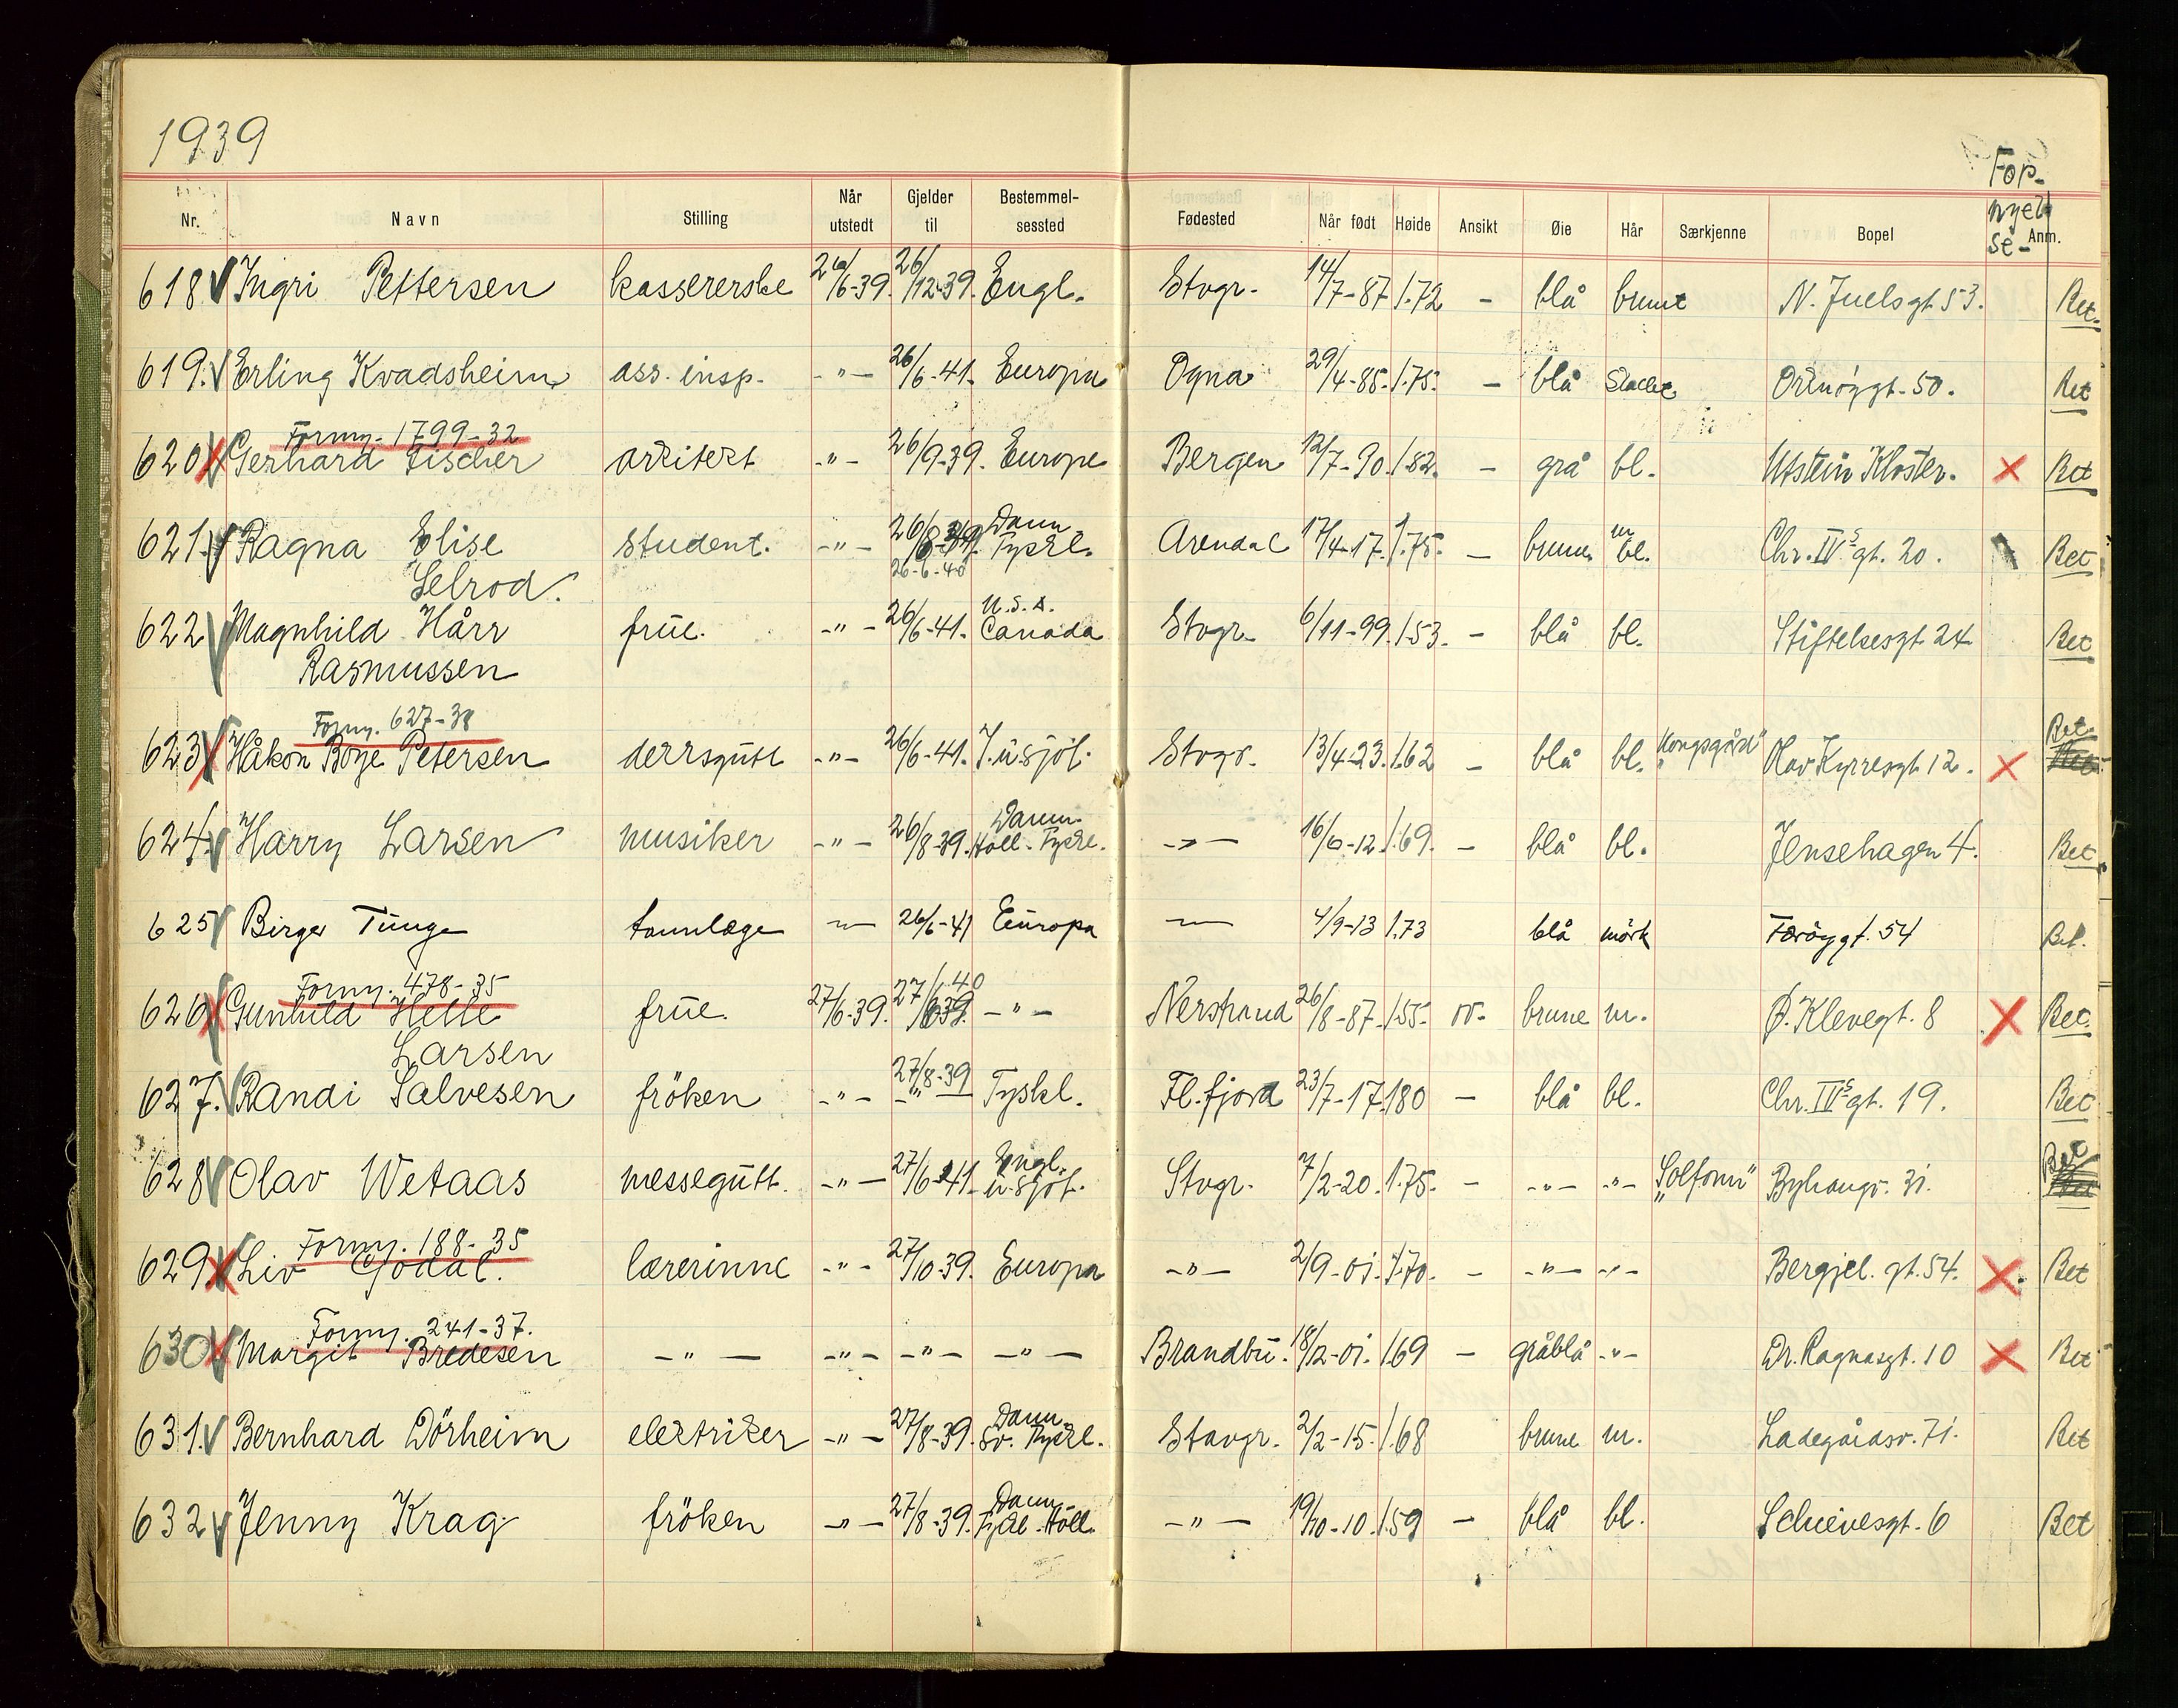 1939
Nr. Navn Stilling Når utstedt Gjelder til Bestemmelsessted Fødested Når født Høide Ansikt Øie Hår Særkjenne Bopel Fornyelse Anm.
618 Ingri Pettersen kassererske 26/6-39. 26/12-39. Engl. Stvgr. 14/7-87 1.72 - blå brunt N. Juelsgt 53. Bet.
619. Erling Kvadsheim ass. insp. -"- 26/6-41. Europa Ogna 29/4-85. 1.75. - blå Bet
Forny. 1799-32
620 Gerhard Fischer arkitekt -"- 26/9-39. Europa Bergen 12/7-90. 1.82. - grå bl. Utstein Kloster. X Bet
621. Ragna Elise student. -"- 26/8-39. Danm. Tyskl. Arendal 17/4-17. 1.75. - brune m bl. Chr. IVs gt. 20. Bet
Selrod. 26-6-40
622 Magnhild Hårr frue. -"- 26/6-41. U.S.A. Canada Stvgr. 6/11-99. 1.53. - blå bl. Stiftelsesgt 24 Bet
Rasmussen
Forny. 627-38
623 Håkon Boye Petersen derrsgutt -"- 26/6-41. I.u.sjöf. Stvgr. 13/4-23. 1.62 - blå bl. "Kongsgård" Olav Kyrresgt 12. X Bet
624. Harry Larsen musiker -"- 26/8-39. Danm. Holl. Tyskl. -"- 16/6-12. 1.69. - blå bl. Jensehagen 4. Bet
625 Birger Tunge tannlæge -"- 26/6-41 Europa -"- 4/9-13 1.73 blå mörk Færöygt. 54 Bet.
Forny. 478-35
626 Gunhild Helle frue. 27/6-39. 27/6-39. 40 -"- Nerstrand 26/8-87. 1.55. ov. brune m. Ø. Klevegt. 8 X Bet.
Larsen
627. Randi Salvesen fröken -"- 27/8-39 -"- Tyskl. Fl.fjord 23/7-17. 180 - blå bl. Chr. IVs gt. 19. Bet
628 Olav Wetaas messegutt. -"- 27/6-41. Engl. u. sjöf. Stvgr. 7/2-20. 1.75. - -"- -"- "Solfonn" Byhaugv. 31. Bet
Forny. 188-35
629 Liv Godal. lærerinne -"- 27/10-39. Europa -"- 2/9-01. 1.70. - -"- -"- Bergjel. gt. 54. X. Bet
Forny. 241-37.
630 Margit Bredesen -"- -"- -"- -"- Brandbu. 18/12-01. 1.69 - gråblå -"- Dr. Ragnasgt. 10 X Bet
631. Bernhard Dörheim elektriker -"- 27/8-39. Danm. Sv. Tyskl. Stavgr. 2/2-15. 1.68 brune m. Ladegårdsv. 71. Bet
632 Jenny Krag fröken -"- 27/8-39. Danm. Holl. -"- 19/10-10. 1.59 - blå bl. Schievesgt. 6 Bet